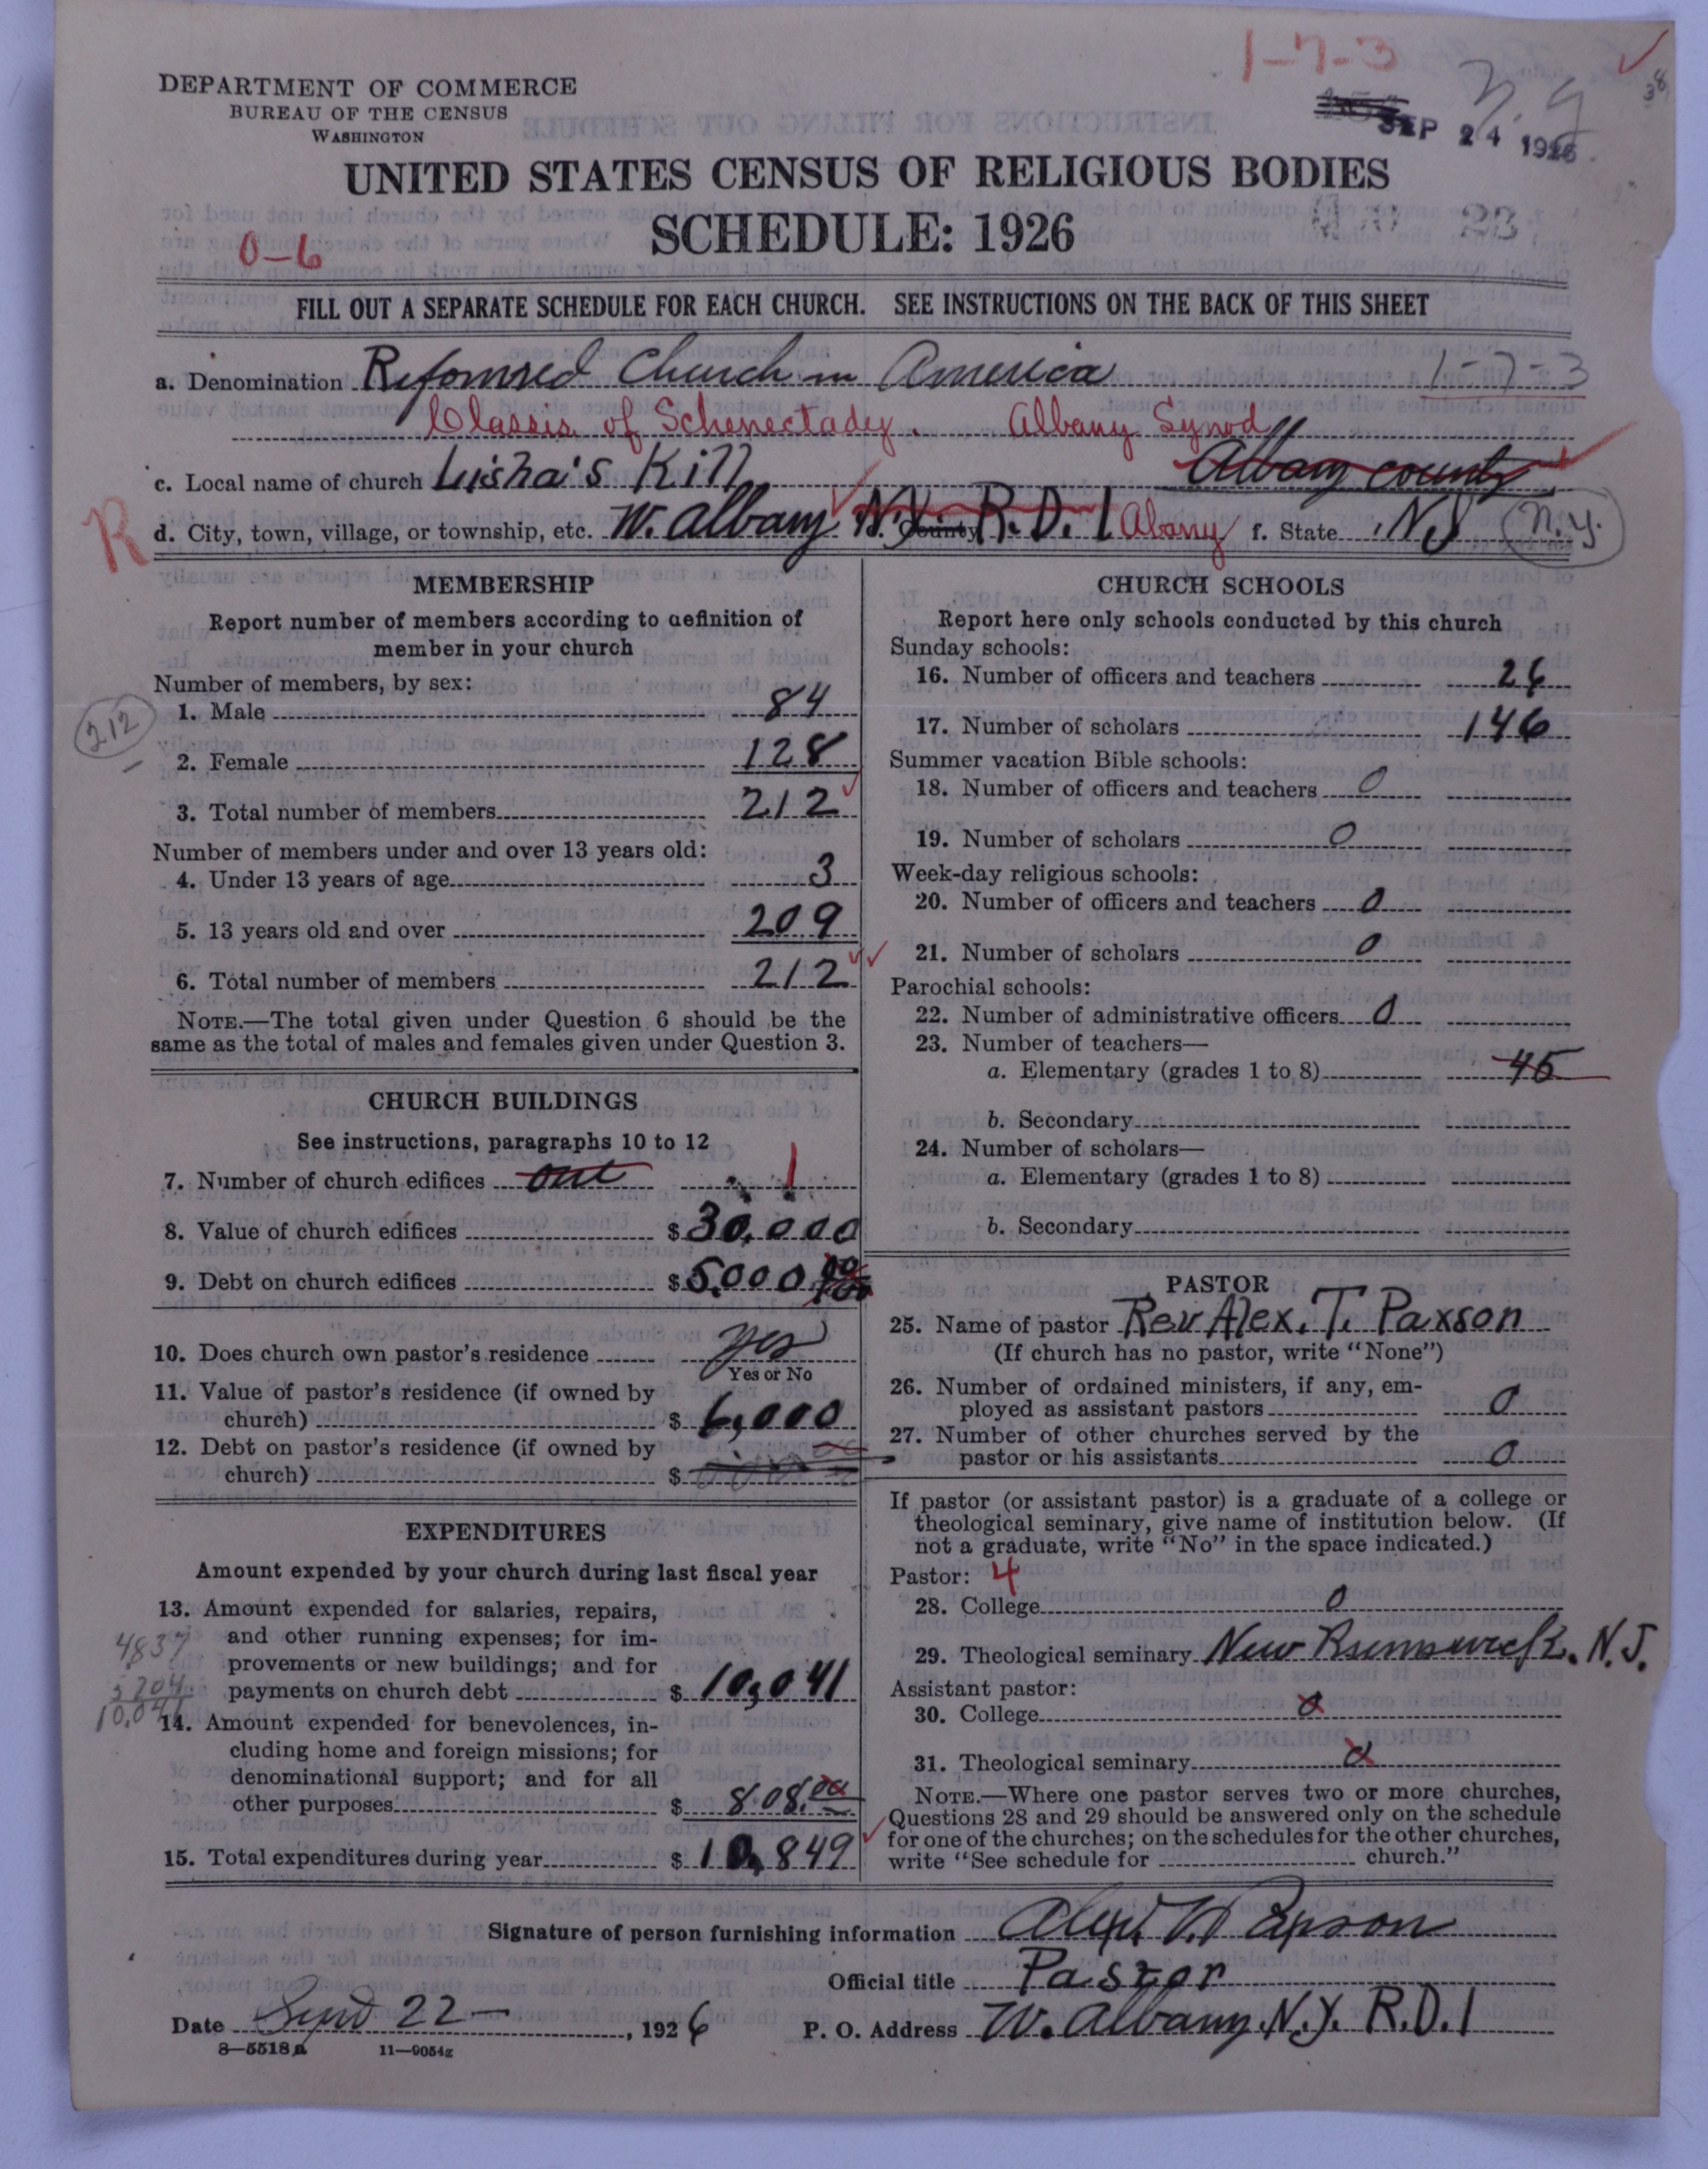 1-7-3
DEPARTMENT OF COMMERCE
BUREAU OF THE CENSUS
WASHINGTON
SEP 24 1926
UNITED STATES CENSUS OF RELIGIOUS BODIES
SCHEDULE: 1926
0-6
23
FILL OUT A SEPARATE SCHEDULE FOR EACH CHURCH. SEE INSTRUCTIONS ON THE BACK OF THIS SHEET
a. Denomination Reformed Church in America 1-7-3
Classis of Schenectady. Albany Synod
c. Local name of church Lisha's Kill Albany county
R d. City, town, village, or township, etc. W. Albany N.Y. County R.D. 1 Albany f. State N.Y. N.Y.
MEMBERSHIP
Report number of members according to definition of
member in your church
Number of members, by sex:
212
1. Male 84
2. Female 128
3. Total number of members 212
Number of members under and over 13 years old:
4. Under 13 years of age 3
5. 13 years old and over 209
6. Total number of members 212
NOTE.—The total given under Question 6 should be the
same as the total of males and females given under Question 3.
CHURCH BUILDINGS
See instructions, paragraphs 10 to 12
7. Number of church edifices one 1
8. Value of church edifices $ 30,000
9. Debt on church edifices $ 5,000
10. Does church own pastor's residence yes
Yes or No
11. Value of pastor's residence (if owned by
church) $ 6,000
12. Debt on pastor's residence (if owned by
church) $
EXPENDITURES
Amount expended by your church during last fiscal year
13. Amount expended for salaries, repairs,
and other running expenses; for im-
provements or new buildings; and for
payments on church debt $ 10,041
4837
5204
10,041
14. Amount expended for benevolences, in-
cluding home and foreign missions; for
denominational support; and for all
other purposes $ 808.00
15. Total expenditures during year $ 10,849
CHURCH SCHOOLS
Report here only schools conducted by this church
Sunday schools:
16. Number of officers and teachers 26
17. Number of scholars 146
Summer vacation Bible schools:
18. Number of officers and teachers 0
19. Number of scholars 0
Week-day religious schools:
20. Number of officers and teachers 0
21. Number of scholars 0
Parochial schools:
22. Number of administrative officers 0
23. Number of teachers—
a. Elementary (grades 1 to 8) 45
b. Secondary
24. Number of scholars—
a. Elementary (grades 1 to 8)
b. Secondary
PASTOR
25. Name of pastor Rev Alex. T. Paxson
(If church has no pastor, write "None")
26. Number of ordained ministers, if any, em-
ployed as assistant pastors 0
27. Number of other churches served by the
pastor or his assistants 0
If pastor (or assistant pastor) is a graduate of a college or
theological seminary, give name of institution below. (If
not a graduate, write "No" in the space indicated.)
Pastor: 4
28. College 0
29. Theological seminary New Brunswick. N.J.
Assistant pastor:
30. College 0
31. Theological seminary 0
NOTE.—Where one pastor serves two or more churches,
Questions 28 and 29 should be answered only on the schedule
for one of the churches; on the schedules for the other churches,
write "See schedule for church."
Signature of person furnishing information Alex. T. Paxson
Official title Pastor
Date Sept 22 — , 1926 P. O. Address W. Albany. N.Y. R.D. 1
8—5518a 11—9054g